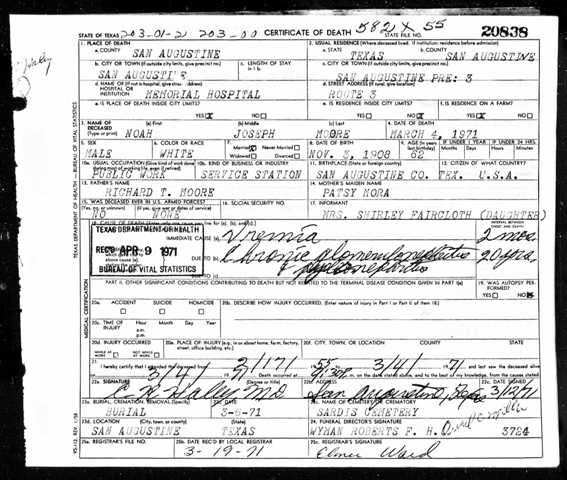 STATE OF TEXAS 203-01-2 203-00 CERTIFICATE OF DEATH 582 X 55 STATE FILE NO. 20838
1. PLACE OF DEATH 2. USUAL RESIDENCE (Where deceased lived. If institution: residence before admission)
a. COUNTY SAN AUGUSTINE a. STATE TEXAS b. COUNTY SAN AUGUSTINE
b. CITY OR TOWN (If outside city limits, give precinct no.) c. LENGTH OF STAY c. CITY OR TOWN (If outside city limits, give precinct no.)
SAN AUGUSTINE SAN AUGUSTINE PRE: 3
d. NAME OF HOSPITAL OR INSTITUTION MEMORIAL HOSPITAL d. STREET ADDRESS (If rural, give location) ROUTE 3
e. IS PLACE OF DEATH INSIDE CITY LIMITS? YES NO e. IS RESIDENCE INSIDE CITY LIMITS? YES NO f. IS RESIDENCE ON A FARM? YES NO
3. NAME OF DECEASED (Type or print) (a) First (b) Middle (c) Last 4. DATE OF DEATH
NOAH JOSEPH MOORE MARCH 4, 1971
5. SEX 6. COLOR OR RACE 7. Married Never Married Widowed Divorced 8. DATE OF BIRTH 9. AGE IF UNDER 1 YEAR IF UNDER 24 HRS.
MALE WHITE NOV. 3, 1908 62
10a. USUAL OCCUPATION 10b. KIND OF BUSINESS OR INDUSTRY 11. BIRTHPLACE (State or foreign country) 12. CITIZEN OF WHAT COUNTRY?
PUBLIC WORK SERVICE STATION SAN AUGUSTINE CO. TEX. U.S.A.
13. FATHER'S NAME 14. MOTHER'S MAIDEN NAME
RICHARD T. MOORE PATSY MORA
15. WAS DECEASED EVER IN U.S. ARMED FORCES? 16. SOCIAL SECURITY NO. 17. INFORMANT
NO NONE MRS. SHIRLEY FAIRCLOTH (DAUGHTER)
TEXAS DEPARTMENT OF HEALTH
REC'D APR 9 1971
BUREAU OF VITAL STATISTICS
IMMEDIATE CAUSE (a) Uremia 2 mos.
DUE TO (b) Chronic glomerulonephritis 20 yrs
DUE TO (c) pyelonephritis
PART II. OTHER SIGNIFICANT CONDITIONS CONTRIBUTING TO DEATH BUT NOT RELATED TO THE TERMINAL DISEASE CONDITION GIVEN IN PART I(a) 19. WAS AUTOPSY PERFORMED? YES NO
20a. ACCIDENT SUICIDE HOMICIDE 20b. DESCRIBE HOW INJURY OCCURRED. (Enter nature of injury in Part I or Part II of item 18)
20c. TIME OF INJURY Hour Month Day Year a.m. p.m.
20d. INJURY OCCURRED WHILE AT WORK NOT WHILE AT WORK 20e. PLACE OF INJURY (e.g. in or about home, farm, factory, street, office building, etc.) 20f. CITY, TOWN, OR LOCATION COUNTY STATE
21. I hereby certify that I attended the deceased from 71 3/4/ 71 and last saw the deceased alive
22a. SIGNATURE (Degree or title) 22b. ADDRESS 22c. DATE SIGNED
Haley MD San Augustine, Texas 3/12/71
23a. BURIAL, CREMATION, REMOVAL (Specify) 23b. DATE 23c. NAME OF CEMETERY OR CREMATORY
BURIAL 3-6-71 SARDIS CEMETERY
23d. LOCATION (City, town, or county) (State) 24. FUNERAL DIRECTOR'S SIGNATURE
SAN AUGUSTINE TEXAS WYMAN ROBERTS F. H. 3724
25a. REGISTRAR'S FILE NO. 25b. DATE REC'D BY LOCAL REGISTRAR 25c. REGISTRAR'S SIGNATURE
3-19-71 Elmer Ward